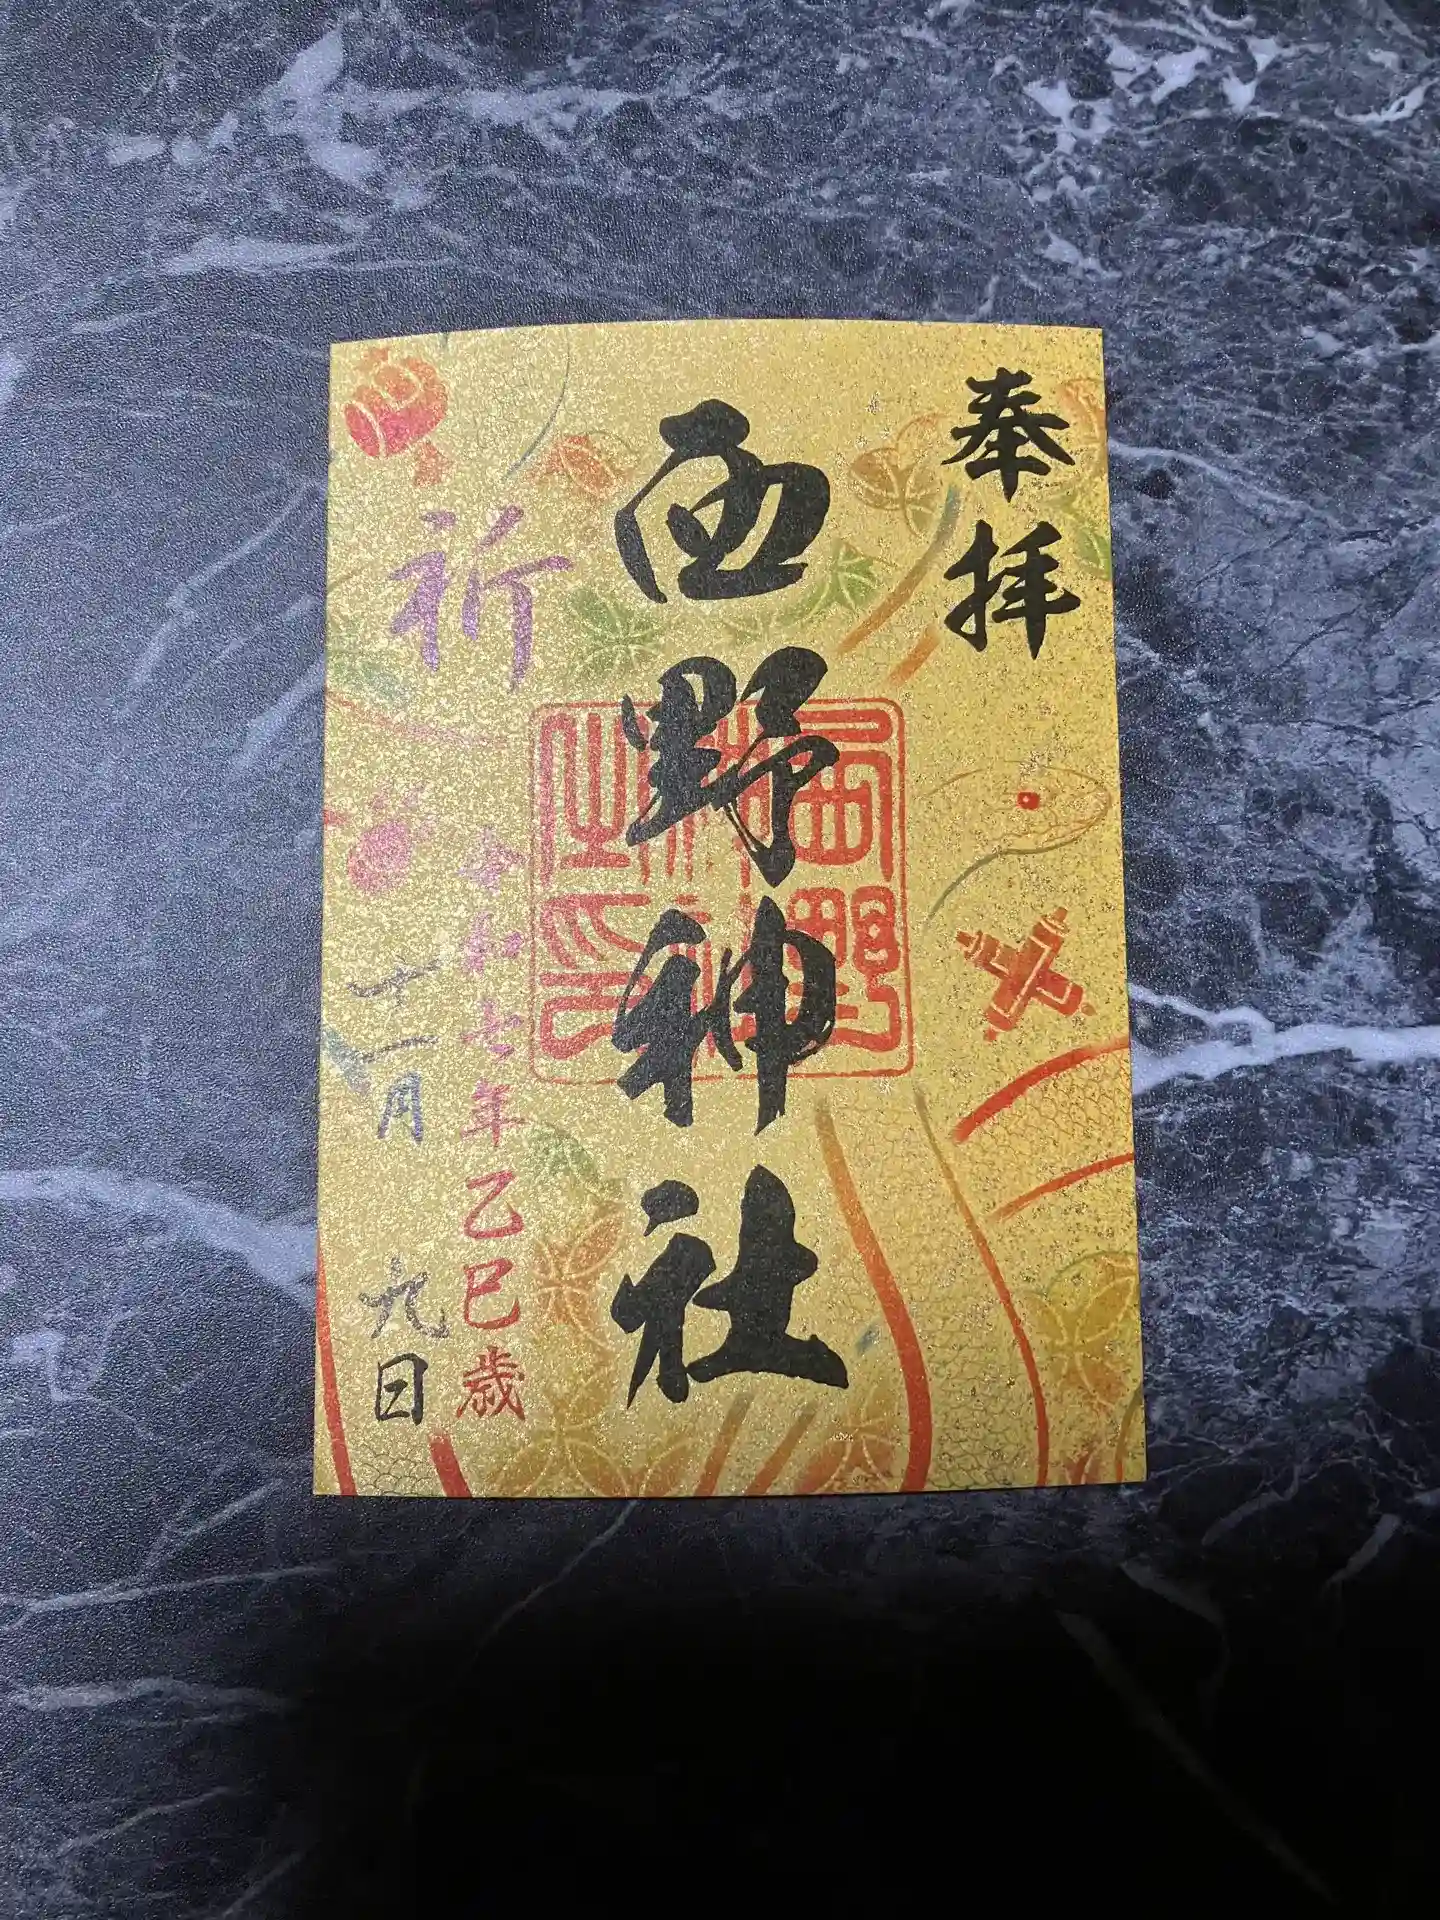 奉拝
西野神社
西野神社之印
祈
令和七年乙巳歳
十一月 九日